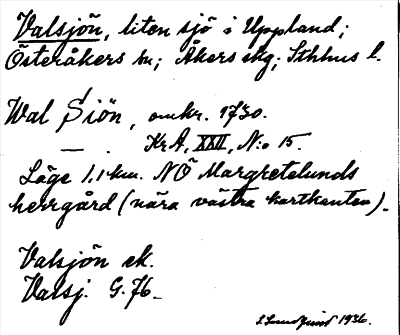 Valsjön, liten sjö i Uppland;
Österåkers sn; Åkers skg; Sthlms l.
Wal Siön, omkr. 1730.
— . KrA, XXII, N:o 15.
Läge 1,1 km. NÖ Margretelunds
herrgård (nära västra kartkanten).
Valsjön ek.
Valsj. G. 76_
1936.